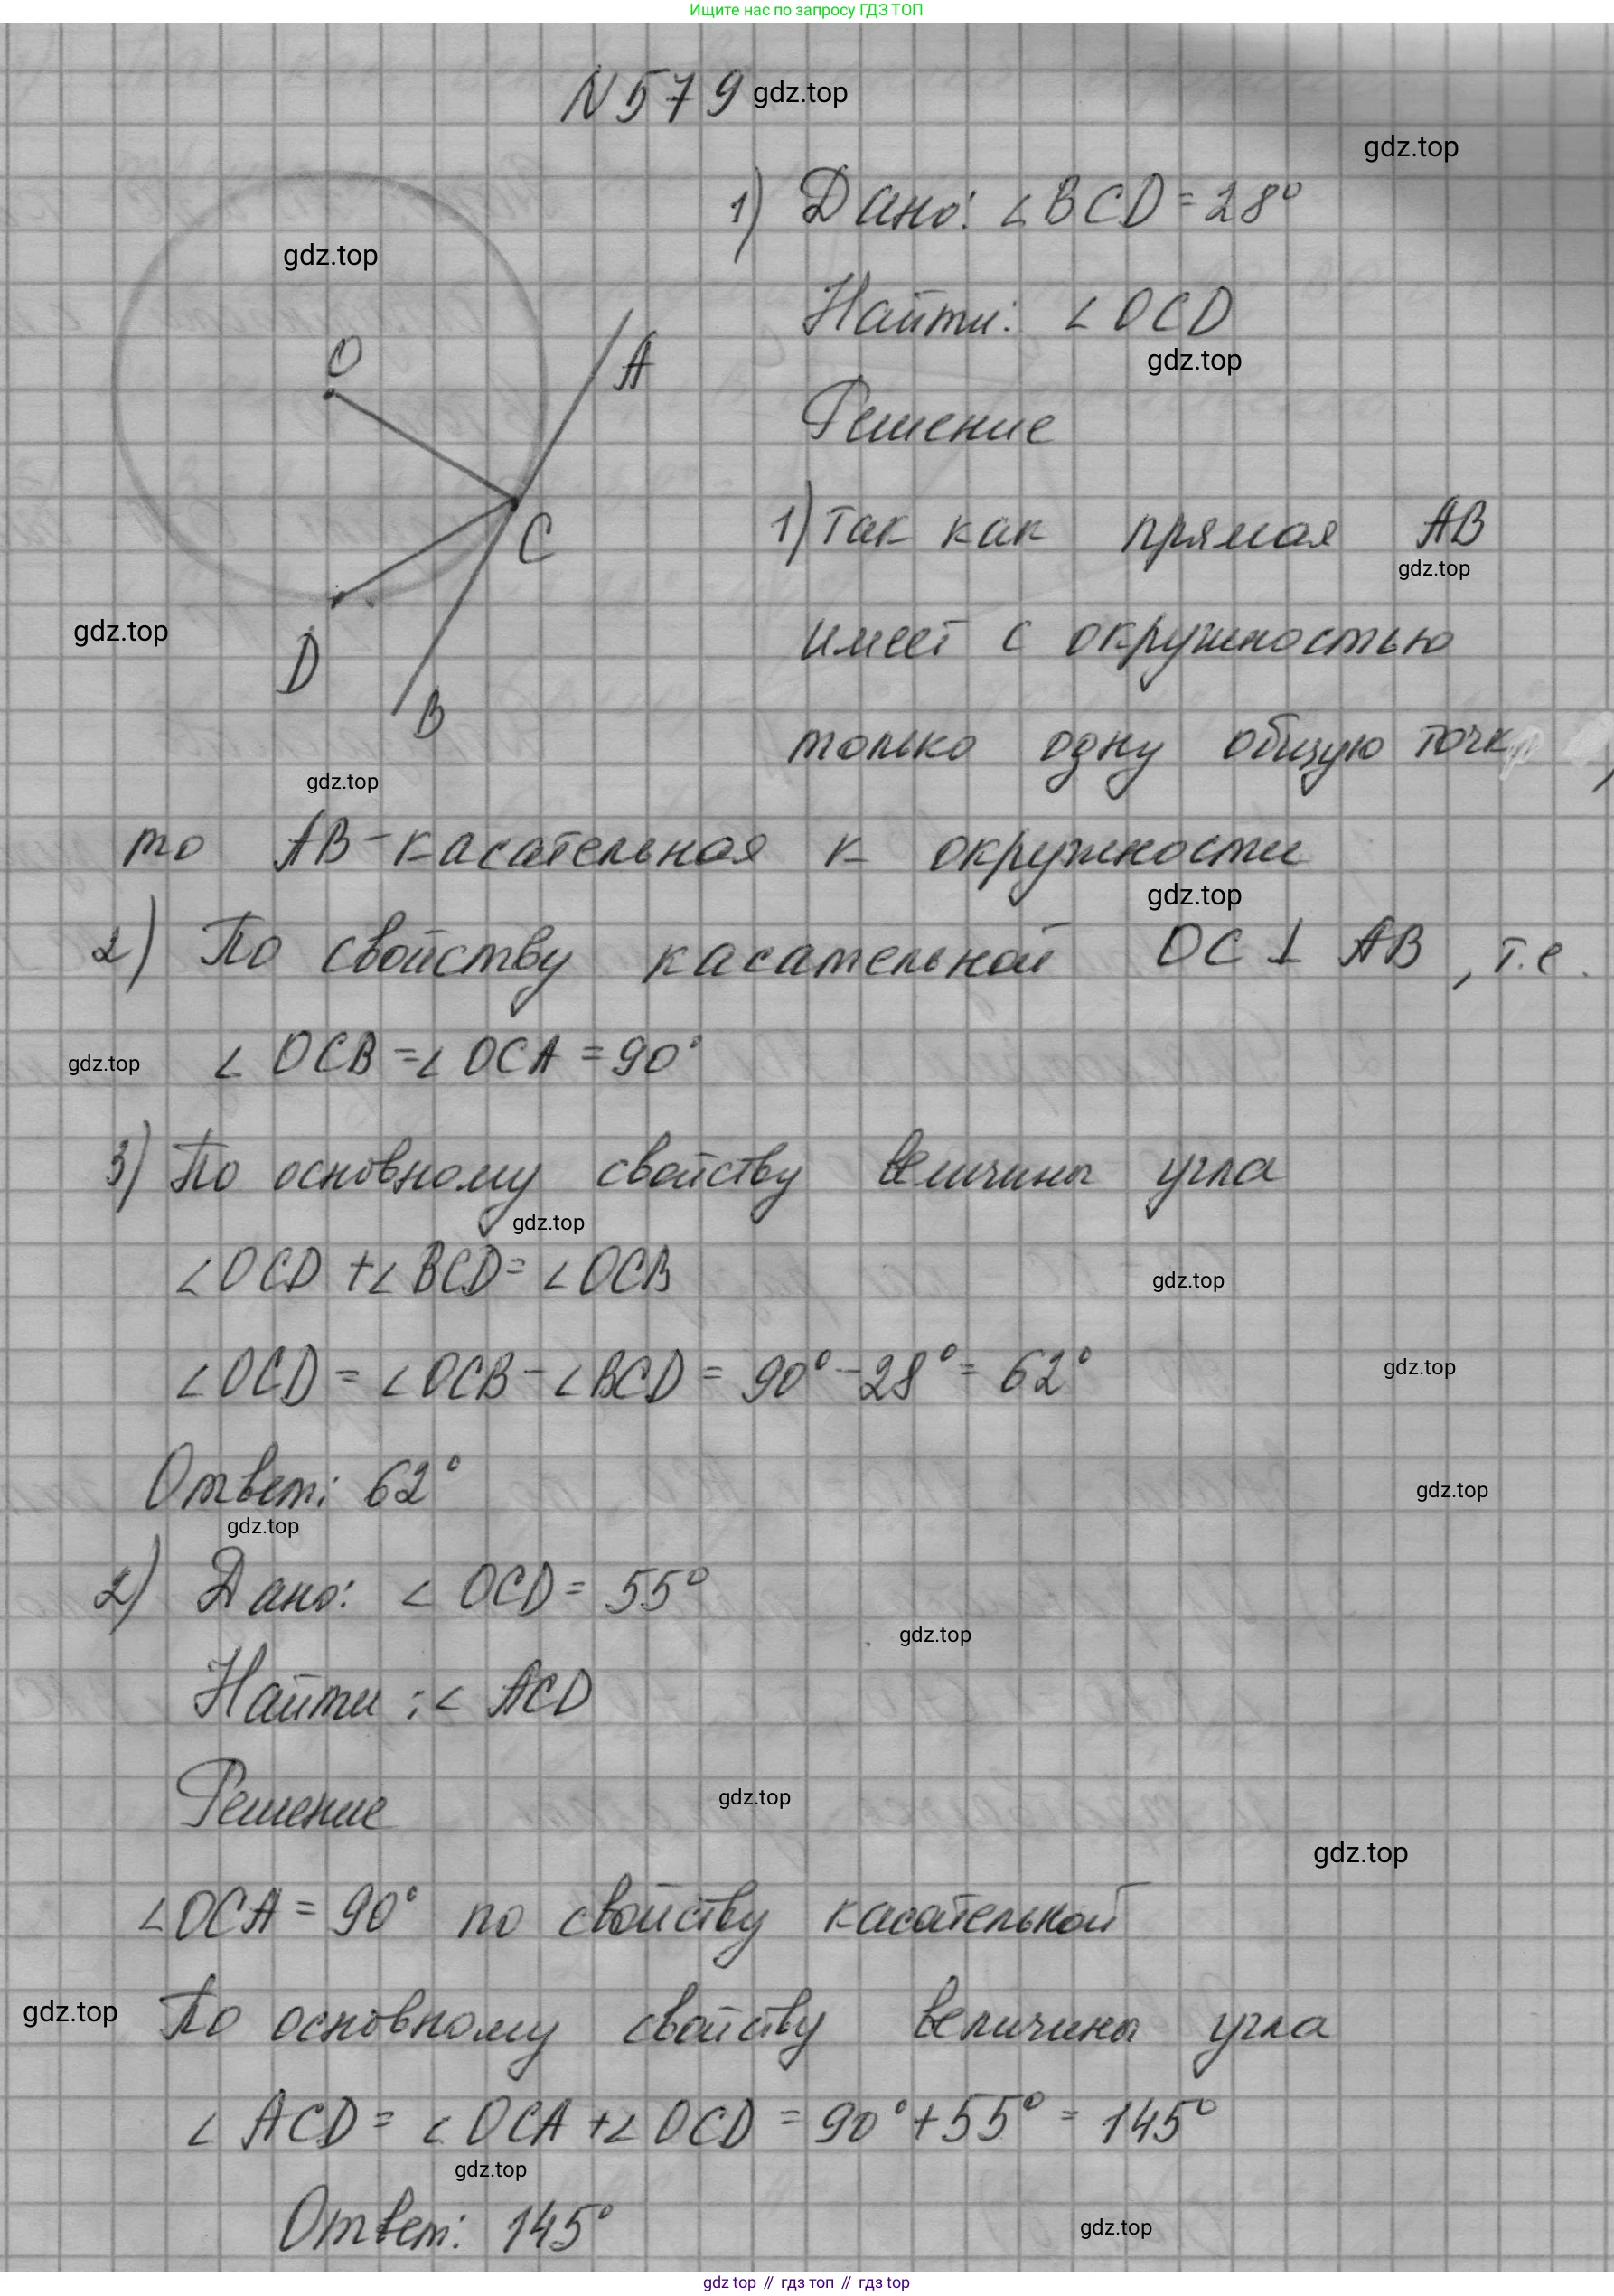 Ищите нас по запросу ГДЗ ТОП
N 579 gdz.top
gdz.top
1) Дано: ∠BCD = 28°
gdz.top
Найти: ∠OCD
gdz.top
O
A
Решение
1) Так как прямая AB
gdz.top
C
имеет с окружностью
gdz.top
D
B
только одну общую точку,
gdz.top
то AB - касательная к окружности
gdz.top
2) По свойству касательной OC ⊥ AB, т.е.
gdz.top
∠OCB = ∠OCA = 90°
3) По основному свойству величина угла
gdz.top
∠OCD + ∠BCD = ∠OCB
gdz.top
∠OCD = ∠OCB - ∠BCD = 90° - 28° = 62°
gdz.top
Ответ: 62°
gdz.top
gdz.top
2) Дано: ∠OCD = 55°
gdz.top
Найти: ∠ACD
Решение
gdz.top
gdz.top
∠OCA = 90° по свойству касательной
gdz.top
По основному свойству величина угла
∠ACD = ∠OCA + ∠OCD = 90° + 55° = 145°
gdz.top
Ответ: 145°
gdz.top
gdz top // гдз топ // гдз.top